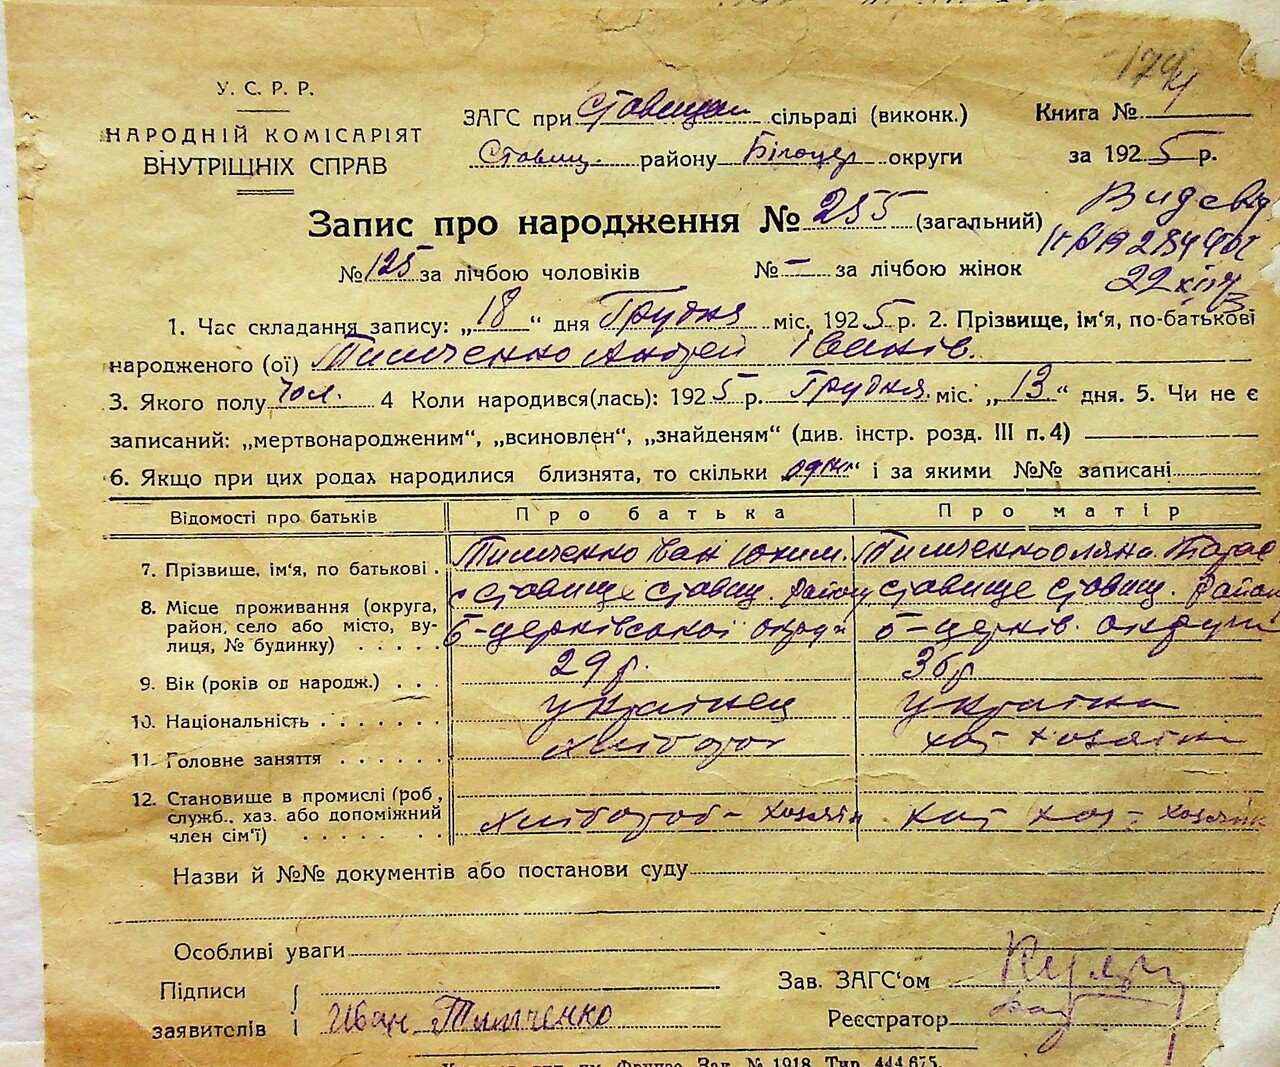 179
У. С. Р. Р.
НАРОДНІЙ КОМІСАРІЯТ
ВНУТРІШНІХ СПРАВ
ЗАГС при Ставищан сільраді (виконк.)
Книга № 4
Ставищ. району Білоцер округи
за 1925 р.
Запис про народження № 255 (загальний)
№ 125 за лічбою чоловіків
№ — за лічбою жінок
1. Час складання запису: „18“ дня Грудня міс. 1925 р. 2. Прізвище, ім'я, по-батькові
народженого (ої) Тимченко Андрей Іванів.
3. Якого полу чол. 4 Коли народився(лась): 1925 р. Грудня міс. „13“ дня. 5. Чи не є
записаний: „мертвонародженим“, „всиновлен“, „знайденям“ (див. інстр. розд. III п. 4)
6. Якщо при цих родах народилися близнята, то скільки один і за якими №№ записані
Відомості про батьків
Про батька
Про матір
7. Прізвище, ім'я, по батькові .
Тимченко Іван Юхим.
Тимченко Оляна Тарас
8. Місце проживання (округа,
район, село або місто, ву-
лиця, № будинку) . . . . .
с Ставище Ставищ. району
Б-церківської округи
Ставище Ставищ. район
Б-церків. округи
9. Вік (років од народж.) . . .
29 р.
36 р
10. Національність . . . . . . .
Українец
Українка
11. Головне заняття . . . . . .
хлібороб
хат хозяйка
12. Становище в промислі (роб.,
служб., хаз. або допоміжний
член сім'ї) . . . . . . .
хлібороб - хозяїн
хат хоз - хозяйк
Назви й №№ документів або постанови суду
Особливі уваги
Підписи
заявителів
Иван Тимченко
Зав. ЗАГС'ом
Реєстратор
им. Фрунзе Зак. № 1918. Тир. 444.675.